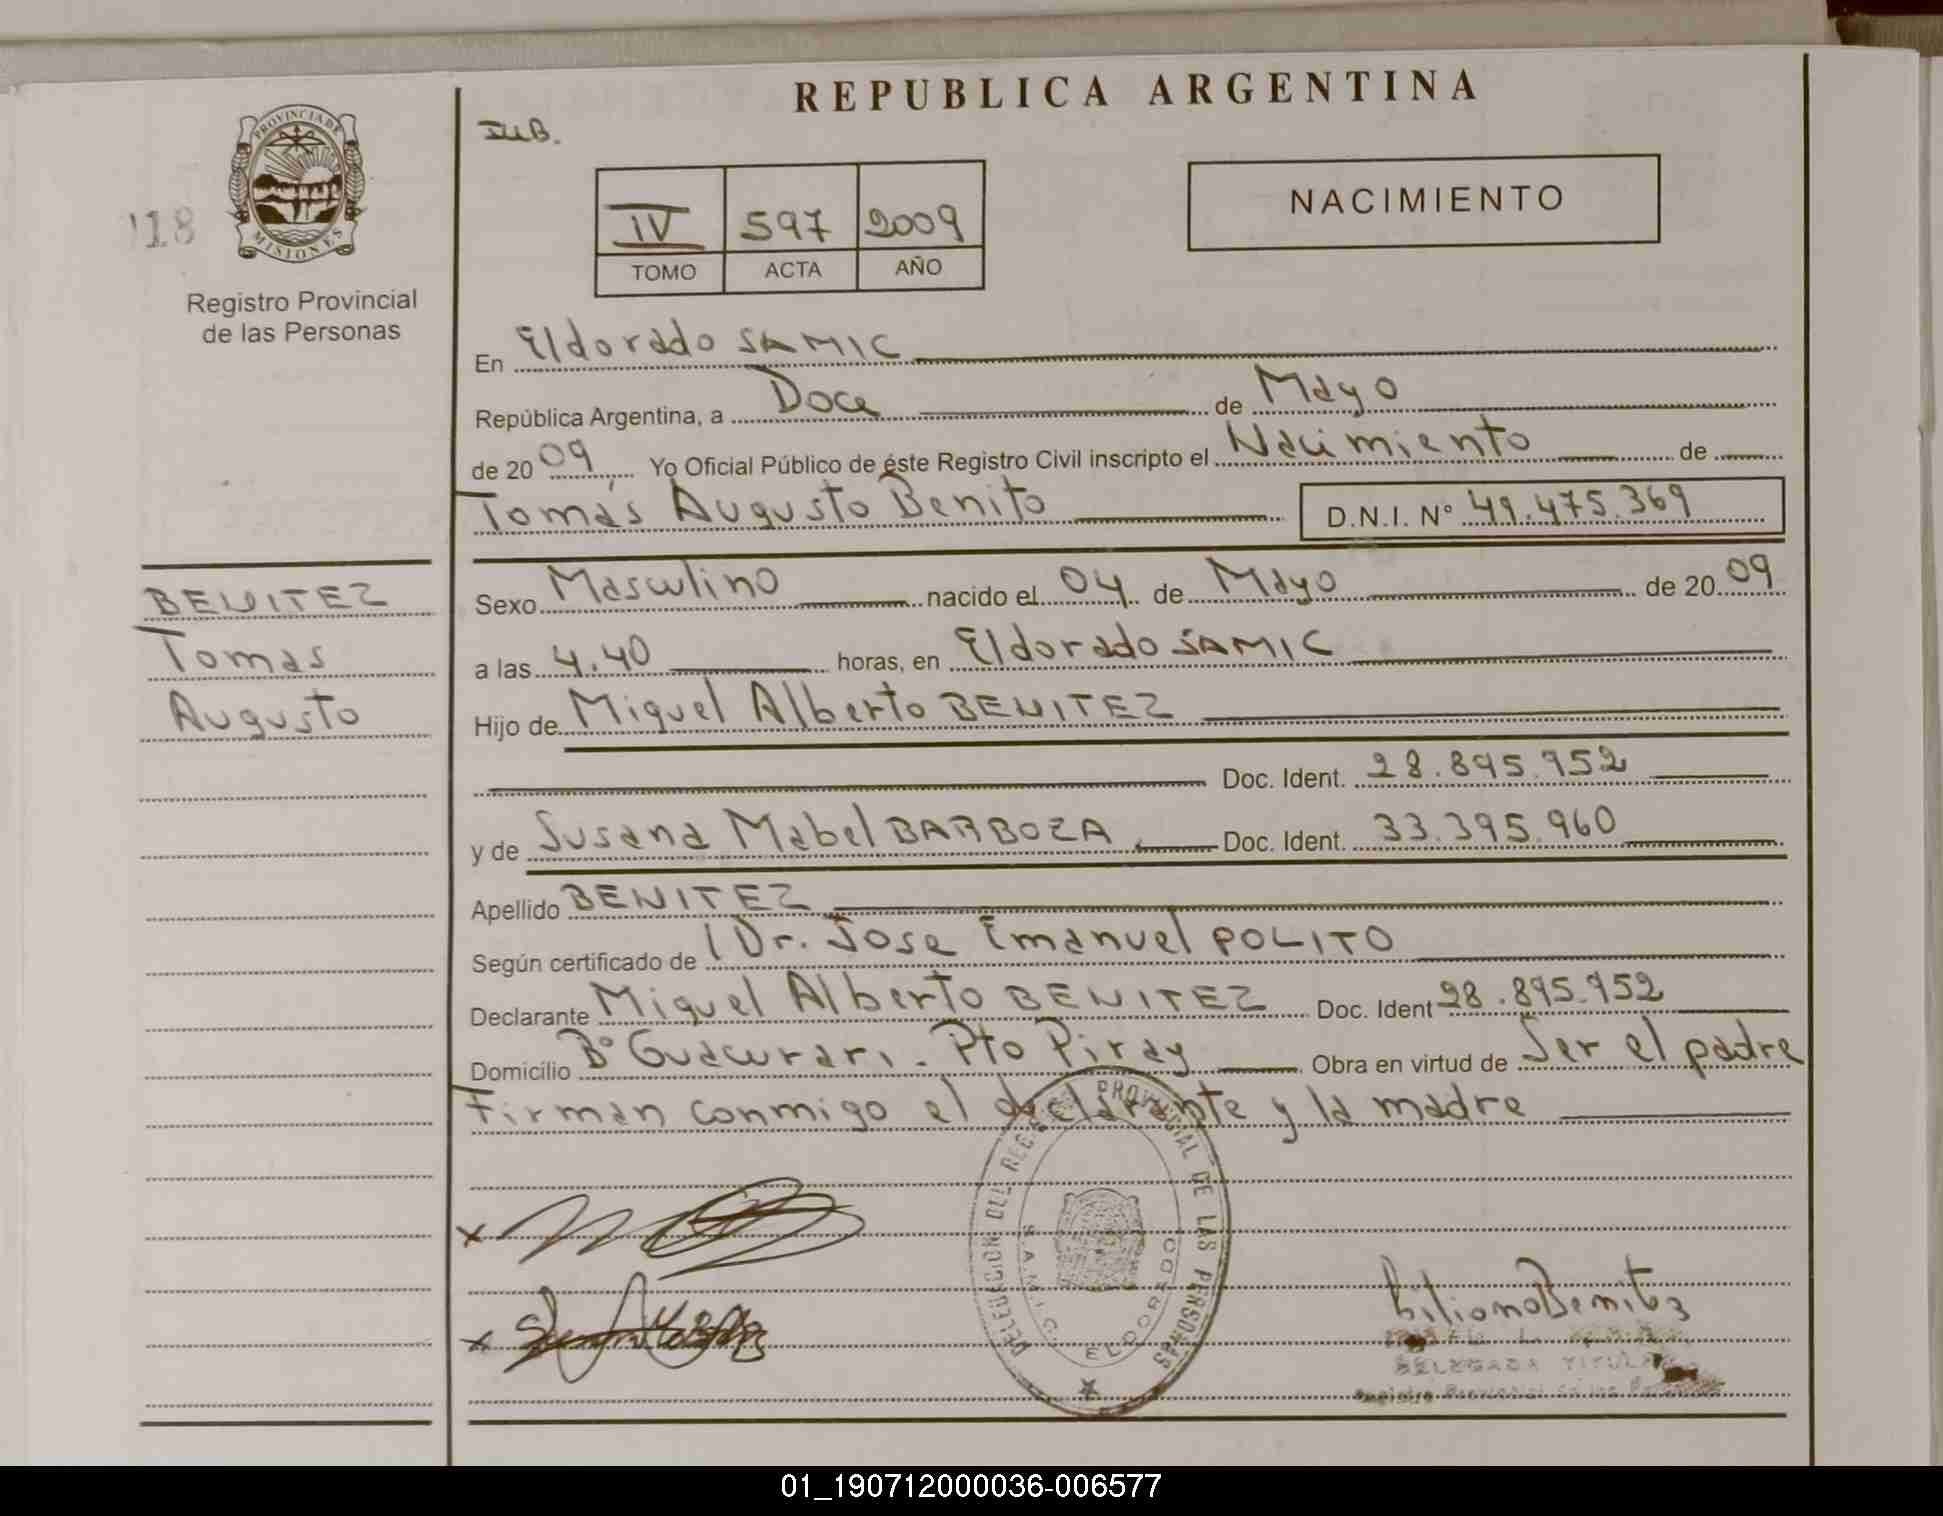 REPUBLICA ARGENTINA
PROVINCIA DE
MISIONES
118
Registro Provincial
de las Personas
NACIMIENTO
IV 597 2009
TOMO ACTA AÑO
En Eldorado SAMIC
República Argentina, a Doce de Mayo
de 20 09 Yo Oficial Público de éste Registro Civil inscripto el Nacimiento de
Tomás Augusto Benito D.N.I. N° 49.475.369
BENITEZ
Tomas
Augusto
Sexo Masculino nacido el 04 de Mayo de 20 09
a las 4.40 horas, en Eldorado SAMIC
Hijo de Miguel Alberto BENITEZ
Doc. Ident. 28.895.952
y de Susana Mabel BARBOZA Doc. Ident. 33.395.960
Apellido BENITEZ
Según certificado de Dr. Jose Emanuel POLITO
Declarante Miguel Alberto BENITEZ Doc. Ident 28.895.952
Domicilio B° Guacurari - Pto Piray Obra en virtud de Ser el padre
Firman conmigo el declarante y la madre
DELEGACION DEL REGISTRO PROVINCIAL DE LAS PERSONAS
S.A.M.I.C. ELDORADO
x
x
Benitez
DELEGADA TITULAR
Registro Provincial de las Personas
01_190712000036-006577